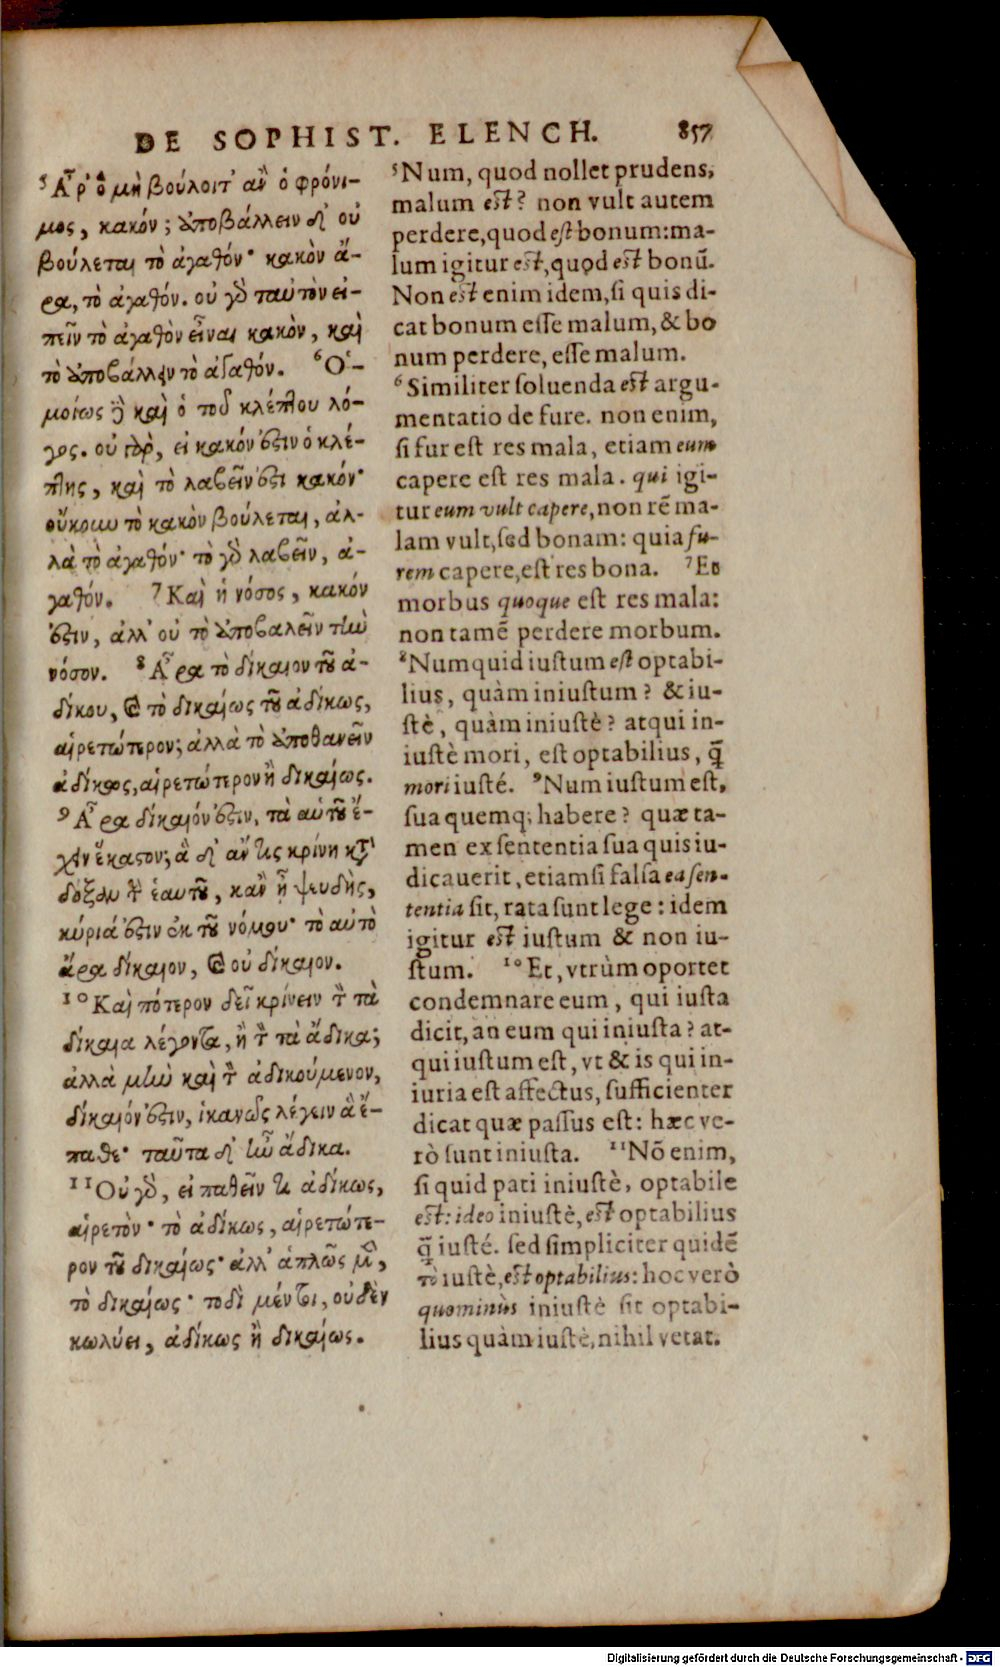 DE SOPHIST. ELENCH. 857
⁵Ἆρ' ὃ μὴ βούλοιτ' ἂν ὁ φρόνι-
μος, κακόν; ἀποβάλλειν δ' οὐ
βούλεται τὸ ἀγαθόν· κακὸν ἄ-
ρα, τὸ ἀγαθόν. οὐ γὸ ταὐτὸν εἰ-
πεῖν τὸ ἀγαθὸν εἶναι κακὸν, καὶ
τὸ ἀποβάλλειν τὸ ἀγαθόν. ⁶Ὁ-
μοίως δὲ καὶ ὁ τοῦ κλέπτου λό-
γος. οὐ γὰρ, εἰ κακόν ἐστιν ὁ κλέ-
πτης, καὶ τὸ λαβεῖν ἐστι κακόν·
οὔκουν τὸ κακὸν βούλεται, ἀλ-
λὰ τὸ ἀγαθόν· τὸ γὸ λαβεῖν, ἀ-
γαθόν. ⁷Καὶ ἡ νόσος, κακόν
ἐστιν, ἀλλ' οὐ τὸ ἀποβαλεῖν τὴν
νόσον. ⁸Ἆρα τὸ δίκαιον τοῦ ἀ-
δίκου, καὶ τὸ δικαίως τοῦ ἀδίκως,
αἱρετώτερον; ἀλλὰ τὸ ἀποθανεῖν
ἀδίκως, αἱρετώτερον ἢ δικαίως.
⁹Ἆρα δίκαιόν ἐστιν, τὰ αὑτοῦ ἔ-
χειν ἕκαστον; ἃ δ' ἄν τις κρίνῃ κτ'
δόξαν τὴν ἑαυτοῦ, κἂν ᾖ ψευδὴς,
κύριά ἐστιν ἐκ τοῦ νόμου· τὸ αὐτὸ
ἄρα δίκαιον, καὶ οὐ δίκαιον.
¹⁰Καὶ πότερον δεῖ κρίνειν τὸν τὰ
δίκαια λέγοντα, ἢ τὸν τὰ ἄδικα;
ἀλλὰ μὴν καὶ τὸν ἀδικούμενον,
δίκαιόν ἐστιν, ἱκανῶς λέγειν ἃ ἔ-
παθε· ταῦτα δ' ἦν ἄδικα.
¹¹Οὐ γὸ, εἰ παθεῖν τι ἀδίκως,
αἱρετὸν· τὸ ἀδίκως, αἱρετώτε-
ρον τοῦ δικαίως· ἀλλ' ἁπλῶς μὲν,
τὸ δικαίως· τοδὶ μέντοι, οὐδὲν
κωλύει, ἀδίκως ἢ δικαίως.
⁵Num, quod nollet prudens,
malum est? non vult autem
perdere, quod est bonum: ma-
lum igitur est, quod est bonū.
Non est enim idem, si quis di-
cat bonum esse malum, & bo
num perdere, esse malum.
⁶Similiter soluenda est argu-
mentatio de fure. non enim,
si fur est res mala, etiam eum
capere est res mala. qui igi-
tur eum vult capere, non rē ma-
lam vult, sed bonam: quia fu-
rem capere, est res bona. ⁷Et
morbus quoque est res mala:
non tamē perdere morbum.
⁸Numquid iustum est optabi-
lius, quàm iniustum? & iu-
stè, quàm iniustè? atqui in-
iustè mori, est optabilius, q̃
mori iusté. ⁹Num iustum est,
sua quemq; habere? quæ ta-
men ex sententia sua quis iu-
dicauerit, etiamsi falsa ea sen-
tentia sit, rata sunt lege: idem
igitur est iustum & non iu-
stum. ¹⁰Et, vtrùm oportet
condemnare eum, qui iusta
dicit, an eum qui iniusta? at-
qui iustum est, vt & is qui in-
iuria est affectus, sufficienter
dicat quæ passus est: hæc ve-
rò sunt iniusta. ¹¹Nō enim,
si quid pati iniustè, optabile
est: ideo iniustè, est optabilius
q̃ iusté. sed simpliciter quidē
τὸ iustè, est optabilius: hoc verò
quominùs iniustè sit optabi-
lius quàm iustè, nihil vetat.
Digitalisierung gefördert durch die Deutsche Forschungsgemeinschaft - DFG